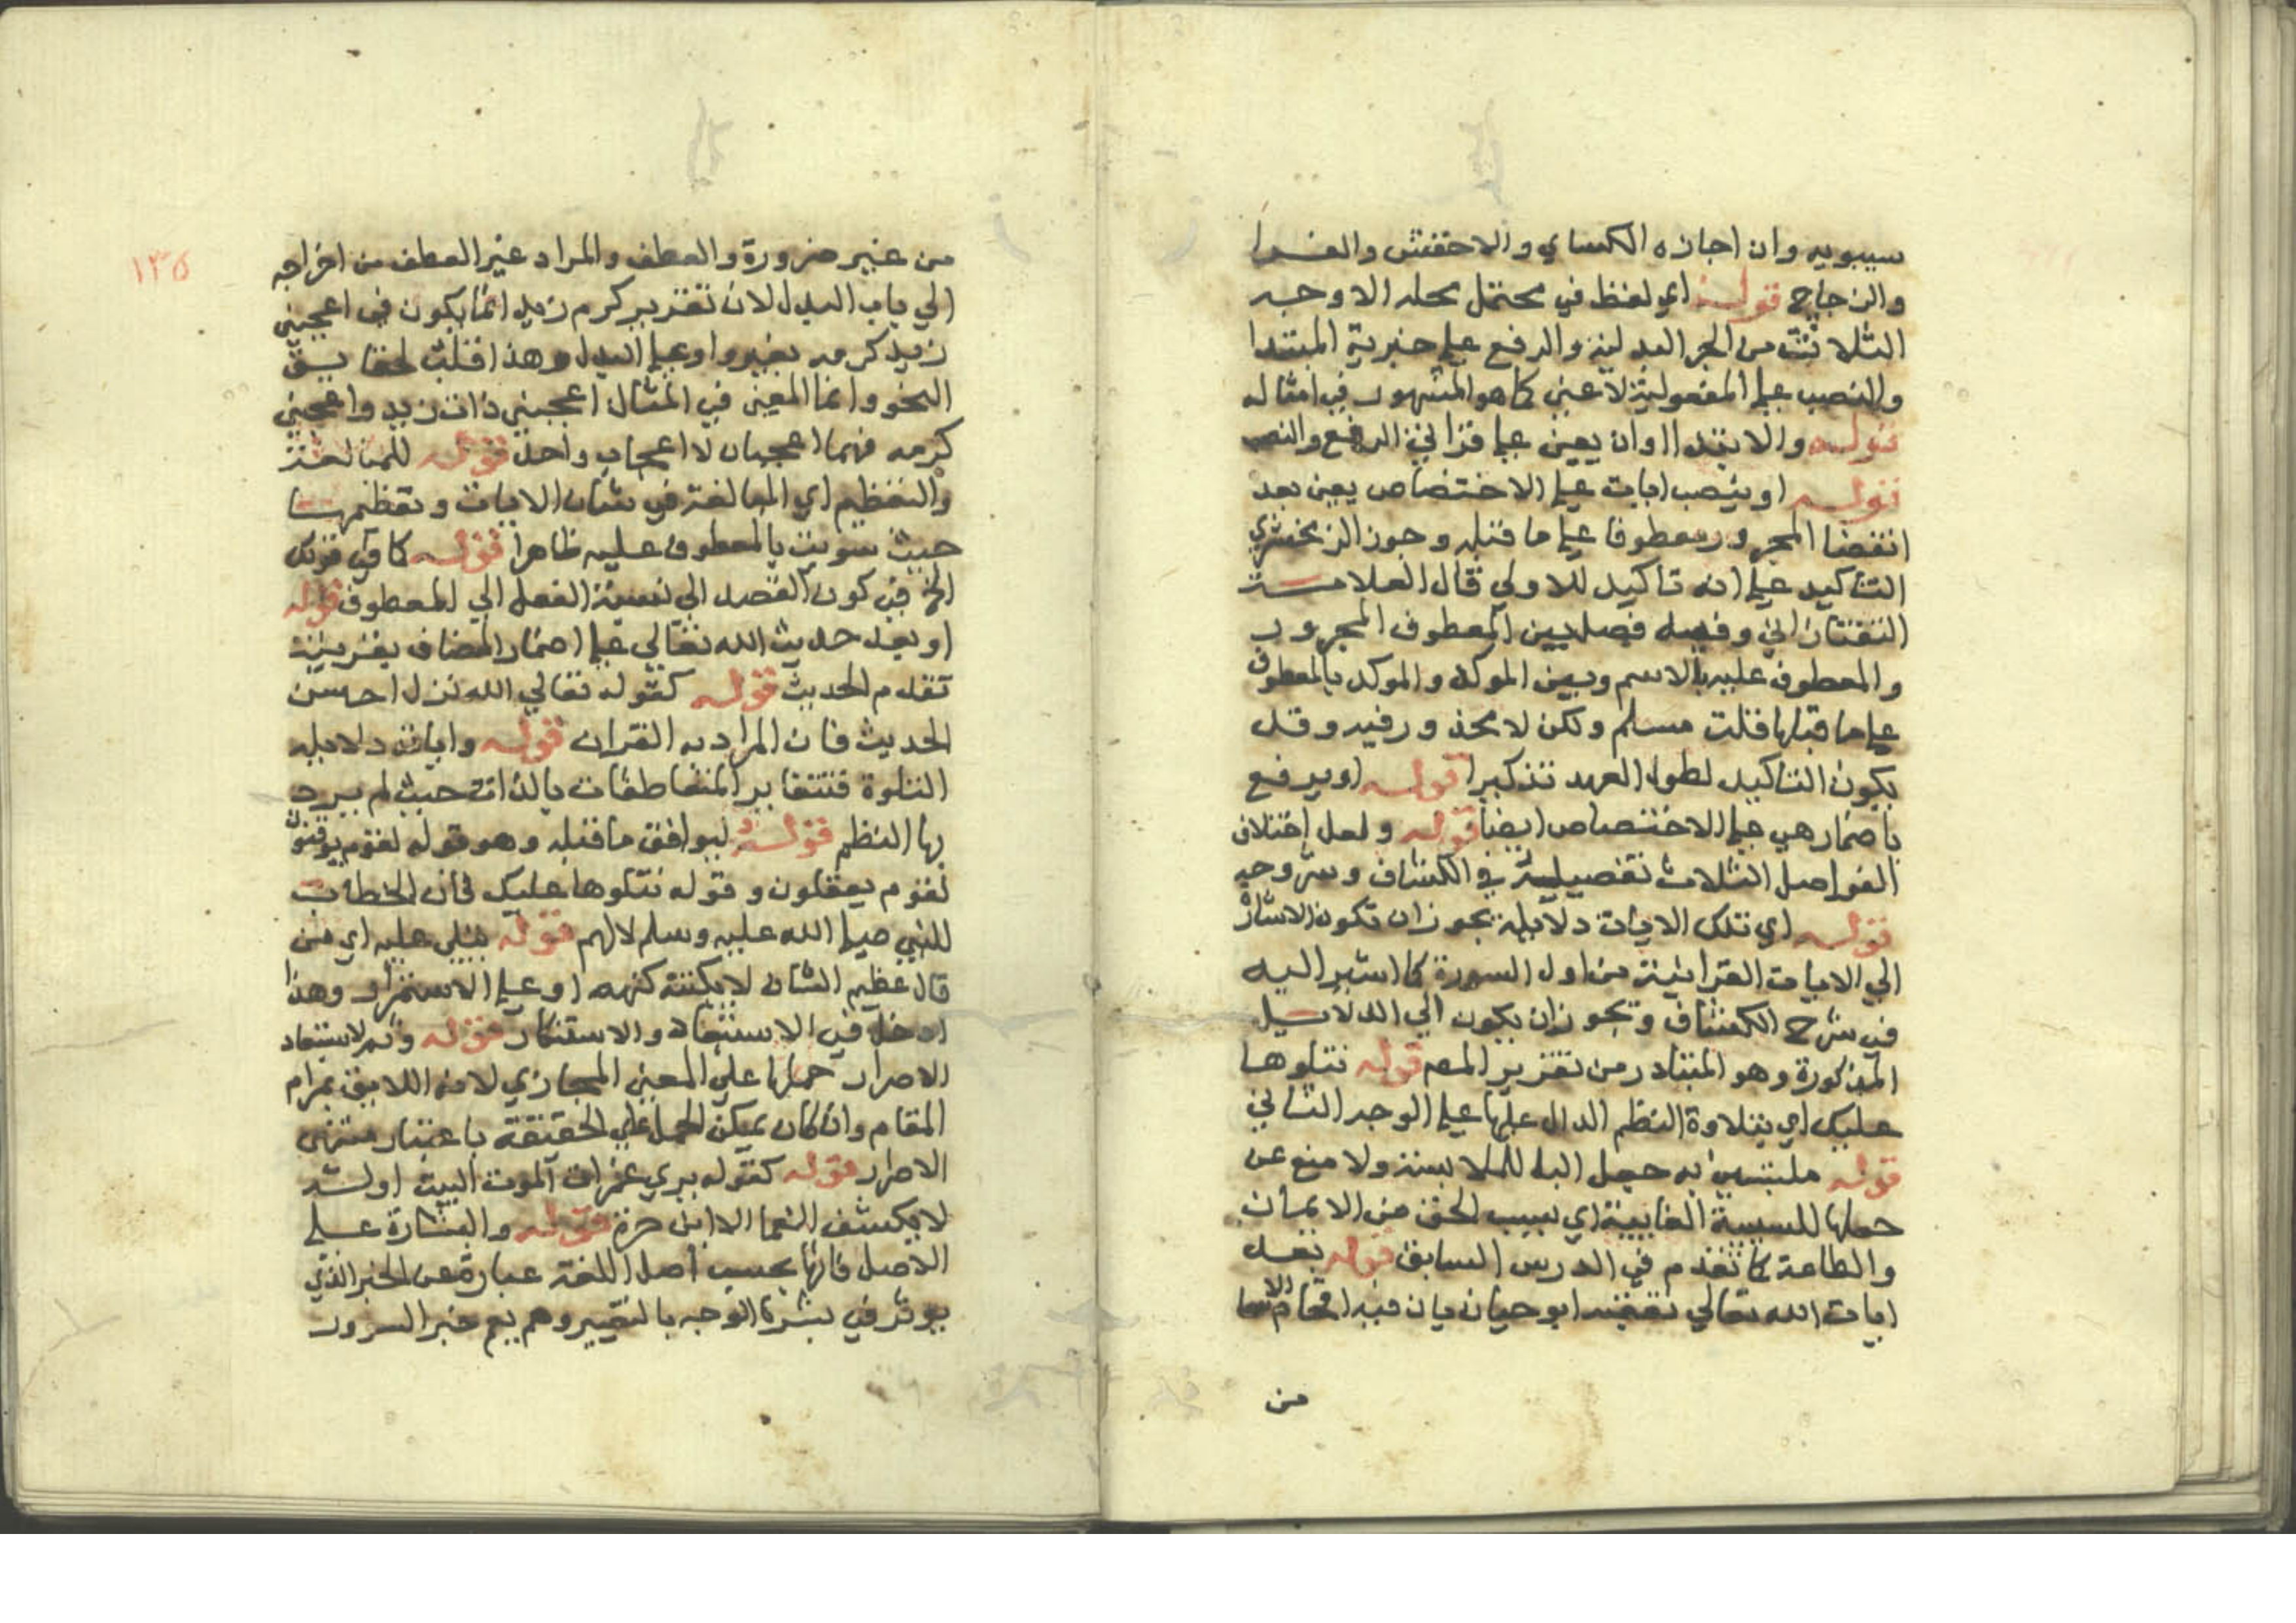 سيبويه وان اجازه الكساي والاخفش والفرا
والزجاج قوله اي لفظ في محتمل محله الاوجه
الثلاثة من الجر البدلية والرفع علي خبرية المبتدا
والنصب علي المفعولية لاعني كما هو المشهور في امثاله
قوله والابتدا وان يعين علي قراني الرفع والنصب
قوله او ينصب ايات علي الاختصاص يعين بعد
انقضا المجرور معطوفا علي ما قبله وجوز الزمخشري
التاكيد علي انه تاكيد للاولي قال العلامة
التفتازاني وفيه فصل بين المعطوف المجرور
والمعطوف عليه بالاسم وبين الموكد والموكد بالمعطوف
علي ما قبلها قلت مسلم ولكن لا محذور فيه وقد
يكون التاكيد لطول العهد تذكيرا قوله او يرفع
باضمار هي علي الاختصاص ايضا قوله ولعل اختلاف
الفواصل الثلاث تفصيله في الكشاف وشروحه
قوله اي تلك الايات دلايله يجوز ان تكون الاشارة
الي الايات القرانية من اول السورة كما اشير اليه
في شرح الكشاف ويجوز ان يكون الي الدلايل
المذكورة وهو المتبادر من تقرير المص قوله نتلوها
عليك اي بتلاوة النظم الدال عليها علي الوجه الثاني
قوله ملتبسين به جعل البا للملابسة ولا منع عن
حملها للسببية الغايية اي بسبب الحق من الايمان
والطاعة كما تقدم في الدرس السابق قوله بعد
ايات الله تعالي تعقبه ابو حيان بان فيه اقحام الاسما
من
١٣٥
من غير ضرورة والعطف والمراد غير العطف من اخراجه
الي باب البدل لان تقرير كرم زيد انما يكون في اعجبني
زيد كرمه بغير واو علي البدل وهذا قلب لحقايق
النحو وانما المعني في المثال اعجبني ذات زيد واعجبني
كرمه فهما اعجابان لا اعجاب واحد قوله للمبالغة
والتعظيم اي المبالغة في شان الايات وتعظيمها
حيث سويت بالمعطوف عليه ظاهرا قوله كما في قولك
الخ في كون القصد الي نسبة الفعل الي المعطوف قوله
او بعد حديث الله تعالي علي اضمار المضاف بقرينة
تقدم الحديث قوله كقوله تعالي الله نزل احسن
الحديث فان المراد به القران قوله واياته دلايله
المتلوة فتتغاير المتعاطفات بالذات حيث لم يرد
بها النظم قوله ليوافق ما قبله وهو قوله لقوم يوقنون
لقوم يعقلون وقوله نتلوها عليك فان الخطاب
للنبي صلي الله عليه وسلم لا لهم قوله تتلي عليه اي من
قال عظيم الشان لا يكتنه كنهه او علي الاستمرار وهذا
ادخل في الاستبعاد والاستنكار قوله وثم لاستبعاد
الاصرار حملها علي المعني المجازي لانه اللايق بمرام
المقام وان كان يمكن الحمل علي الحقيقة باعتبار منتهي
الاصرار قوله كقوله يري غمرات الموت البيت اوله
لا يكشف الغما الا ابن حرة قوله والبشارة علي
الاصل فانها بحسب اصل اللغة عبارة عن الخبر الذي
يوثر في بشرة الوجه بالتغيير وهم يعم خبر السرور